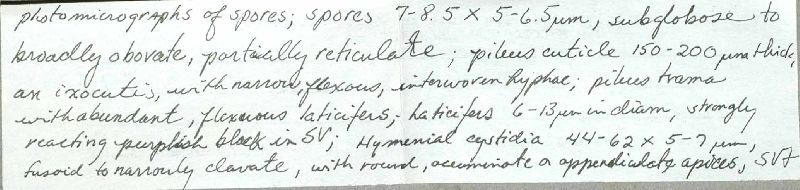 photomicrographs of spores; spores 7-8.5 x 5-6.5µm, subglobose to
broadly obovate, partially reticulate; pileus cuticle 150-200 µm thick,
an ixocutis, with narrow, flexous, interwoven hyphae; pileus trama
with abundant, flexuous laticifers; laticifers 6-13µm in diam, strongly
reacting purplish black in SV; Hymenial cystidia 44-62 x 5-7 µm,
fusoid to narrowly clavate, with round, accuminate or appendiculate apices, SV+